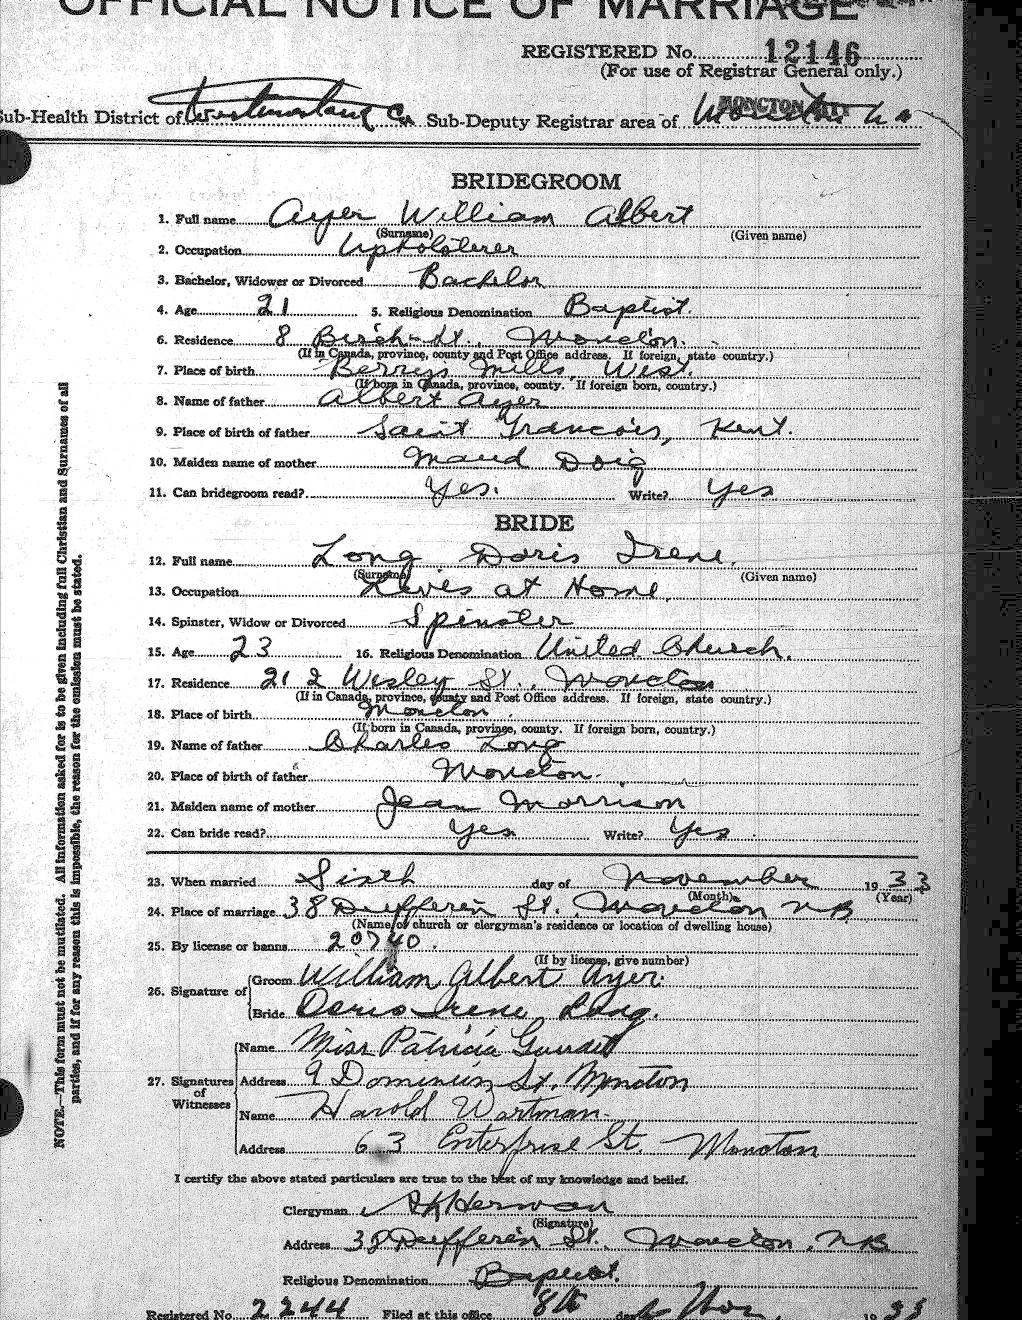 OFFICIAL NOTICE OF MARRIAGE
REGISTERED No. 12146
(For use of Registrar General only.)
Sub-Health District of Westmorland Co Sub-Deputy Registrar area of MONCTON
BRIDEGROOM
1. Full name Ayer William Albert
(Surname) (Given name)
2. Occupation Upholsterer
3. Bachelor, Widower or Divorced Bachelor
4. Age 21 5. Religious Denomination Baptist.
6. Residence 8 Birch St., Moncton.
(If in Canada, province, county and Post Office address. If foreign, state country.)
7. Place of birth Berrys Mills, West.
(If born in Canada, province, county. If foreign born, country.)
8. Name of father Albert Ayer
9. Place of birth of father Saint Francois, Kent.
10. Maiden name of mother Maud Doig
11. Can bridegroom read? Yes. Write? Yes
BRIDE
12. Full name Long Doris Irene.
(Surname) (Given name)
13. Occupation Lives at Home.
14. Spinster, Widow or Divorced Spinster
15. Age 23 16. Religious Denomination United Church.
17. Residence 212 Wesley St., Moncton
(If in Canada, province, county and Post Office address. If foreign, state country.)
18. Place of birth Moncton.
(If born in Canada, province, county. If foreign born, country.)
19. Name of father Charles Long
20. Place of birth of father Moncton.
21. Maiden name of mother Jean Morrison
22. Can bride read? Yes Write? Yes
23. When married Sixth day of November 1933
(Month) (Year)
24. Place of marriage 38 Dufferin St., Moncton NB
(Name of church or clergyman's residence or location of dwelling house)
25. By license or banns 20740.
(If by license, give number)
26. Signature of Groom William Albert Ayer.
Bride Doris Irene Long.
27. Signatures of Witnesses
Name Miss Patricia Gaudet
Address 9 Dominion St. Moncton
Name Harold Wortman
Address 63 Enterprise St. Moncton
I certify the above stated particulars are true to the best of my knowledge and belief.
Clergyman Herman
(Signature)
Address 38 Dufferin St., Moncton, NB
Religious Denomination Baptist.
Registered No. 2244 Filed at this office 8th day of Nov 1933
NOTE.—This form must not be mutilated. All information asked for is to be given including full Christian and Surnames of all
parties, and if for any reason this is impossible, the reason for the omission must be stated.